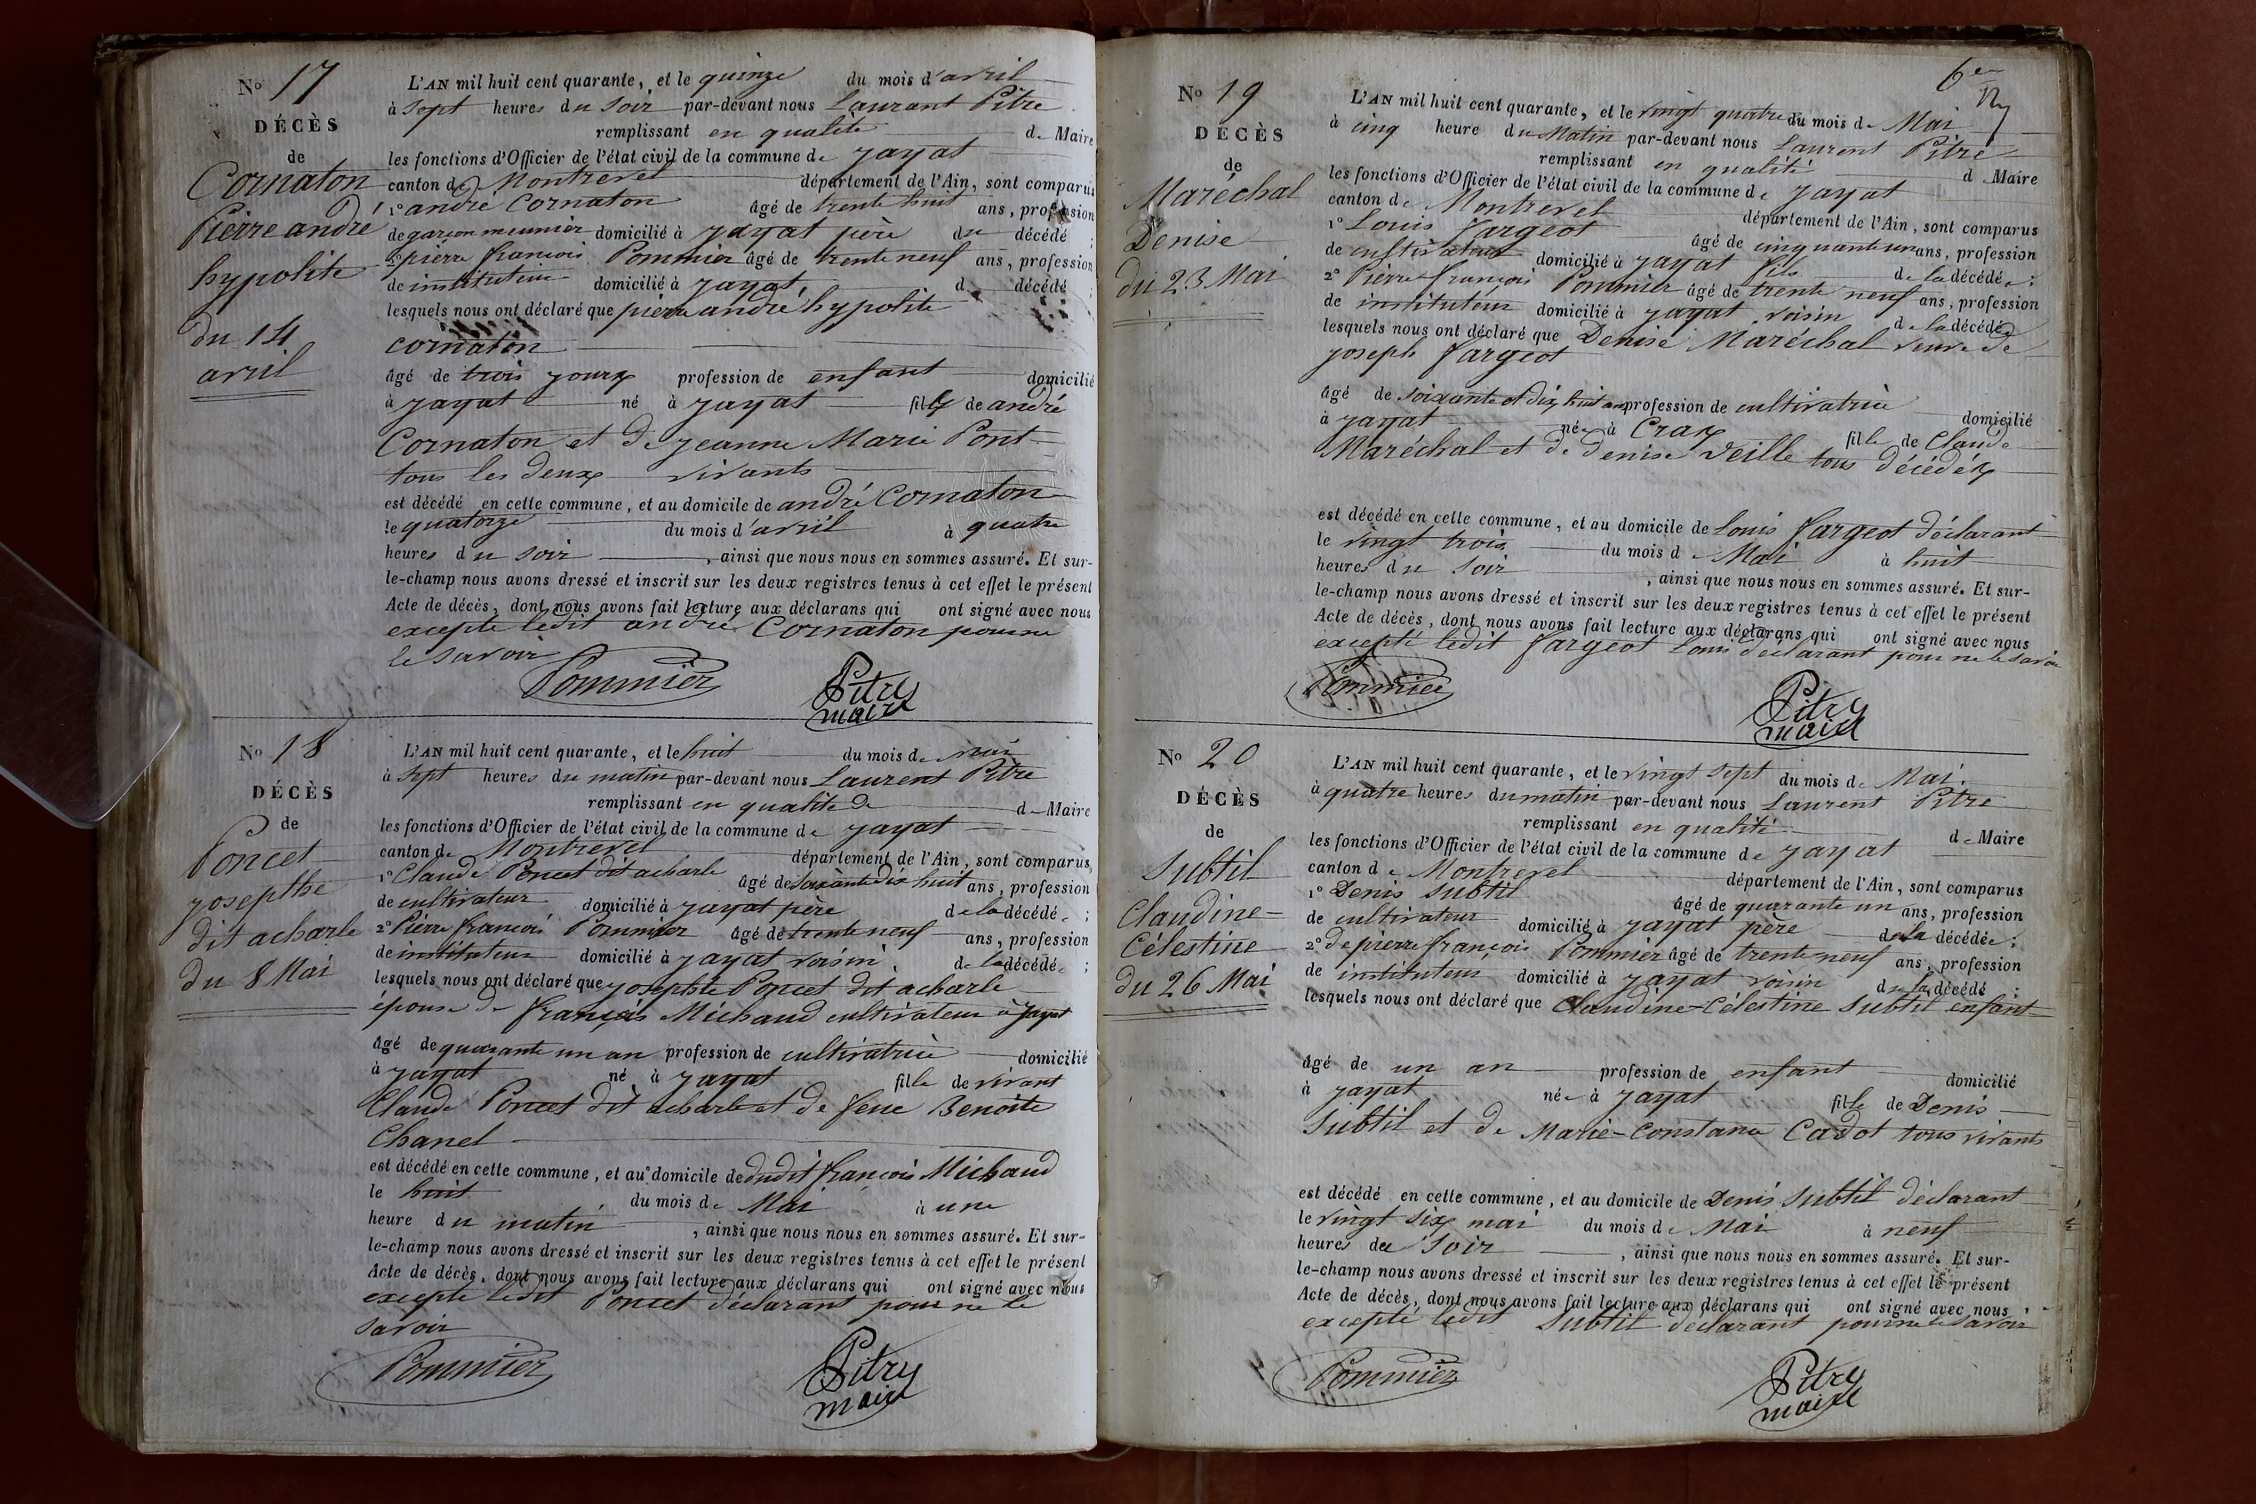 No 17
DÉCÈS
de
Cornaton
Pierre andré
hypolite
du 14
avril
L'AN mil huit cent quarante, et le quinze du mois d'avril
à sept heures du soir par-devant nous Laurant Pitre
remplissant en qualité de Maire
les fonctions d'Officier de l'état civil de la commune de jayat
canton de Montrevel département de l'Ain, sont comparus
1° andré Cornaton âgé de trente huit ans, profession
de garçon meunier domicilié à jayat père du décédé ;
2° pierre françois Pommier âgé de trente neuf ans, profession
de instituteur domicilié à jayat, d décédé ;
lesquels nous ont déclaré que pierre andré hypolite
cornaton
âgé de trois jours profession de enfant domicilié
à jayat né à jayat fils de andré
Cornaton et de jeanne Marie Pont
tous les deux vivants
est décédé en cette commune, et au domicile de andré Cornaton
le quatorze du mois d'avril à quatre
heures du soir , ainsi que nous nous en sommes assuré. Et sur-
le-champ nous avons dressé et inscrit sur les deux registres tenus à cet effet le présent
Acte de décès, dont nous avons fait lecture aux déclarans qui ont signé avec nous
excepte ledit andré Cornaton pour ne
le savoir
Pommier Pitre
maire
No 18
DÉCÈS
de
Poncet
josepthe
dit acharle
du 8 Mai
L'AN mil huit cent quarante, et le huit du mois de mai
à sept heures du matin par-devant nous Laurent Pitre
remplissant en qualite de de Maire
les fonctions d'Officier de l'état civil de la commune de jayat
canton de Montrevel département de l'Ain, sont comparus
1° Claude Poncet dit acharle âgé de soixante dix huit ans, profession
de cultivateur domicilié à jayat père de la décédée ;
2° Pierre francois Pommier âgé de trente neuf ans, profession
de instituteur domicilié à jayat voisin de la décédée ;
lesquels nous ont déclaré que josepthe Poncet dit acharle
épouse de françois Michaud cultivateur à jayat
âgé de quarante un an profession de cultivatrice domicilié
à jayat né à jayat fille de vivant
Claude Poncet dit acharle et de feue Benoite
Chanel
est décédé en cette commune, et au domicile de dudit françois Michaud
le huit du mois de Mai à une
heure du matin , ainsi que nous nous en sommes assuré. Et sur-
le-champ nous avons dressé et inscrit sur les deux registres tenus à cet effet le présent
Acte de décès, dont nous avons fait lecture aux déclarans qui ont signé avec nous
excepte ledit Poncet déclarant pour ne le
savoir
Pommier Pitre
maire
6e
No 19
DÉCÈS
de
Maréchal
Denise
du 23 Mai
L'AN mil huit cent quarante, et le vingt quatre du mois de Mai
à cinq heure du Matin par-devant nous Laurent Pitre
remplissant en qualité d Maire
les fonctions d'Officier de l'état civil de la commune de jayat
canton de Montrevel département de l'Ain, sont comparus
1° Louis fargeot âgé de cinquante un ans, profession
de cultivateur domicilié à jayat fils de la décédée ;
2° Pierre françois Pommier âgé de trente neuf ans, profession
de instituteur domicilié à jayat voisin de la décédée
lesquels nous ont déclaré que Denise Maréchal veuve de
joseph fargeot
âgé de soixante et dix huit ans profession de cultivatrice domicilié
à jayat née à Cras fille de Claude
Maréchal et de denise Veille tous décédés
est décédé en cette commune, et au domicile de Louis fargeot déclarant
le vingt trois du mois de Mai à huit
heures du soir , ainsi que nous nous en sommes assuré. Et sur-
le-champ nous avons dressé et inscrit sur les deux registres tenus à cet effet le présent
Acte de décès, dont nous avons fait lecture aux déclarans qui ont signé avec nous
excepté ledit fargeot Louis déclarant pour ne le savoir
Pommier Pitre
maire
No 20
DÉCÈS
de
Subtil
Claudine-
Célestine
du 26 Mai
L'AN mil huit cent quarante, et le vingt sept du mois de Mai.
à quatre heures du matin par-devant nous Laurent Pitre
remplissant en qualité de Maire
les fonctions d'Officier de l'état civil de la commune de jayat
canton de Montrevel département de l'Ain, sont comparus
1° Denis subtil âgé de quarante un ans, profession
de cultivateur domicilié à jayat père de la décédée ;
2° de pierre françois Pommier âgé de trente neuf ans, profession
de instituteur domicilié à jayat voisin de la décédé ;
lesquels nous ont déclaré que Claudine-Célestine Subtil enfant
âgé de un an profession de enfant domicilié
à jayat née à jayat fille de Denis
Subtil et de Marie-Constance Cadot tous vivants
est décédé en cette commune, et au domicile de Denis Subtil déclarant
le vingt six mai du mois de Mai à neuf
heures du Soir , ainsi que nous nous en sommes assuré. Et sur-
le-champ nous avons dressé et inscrit sur les deux registres tenus à cet effet le présent
Acte de décès, dont nous avons fait lecture aux déclarans qui ont signé avec nous
excepté ledit Subtil déclarant pour ne le savoir
Pommier Pitre
maire